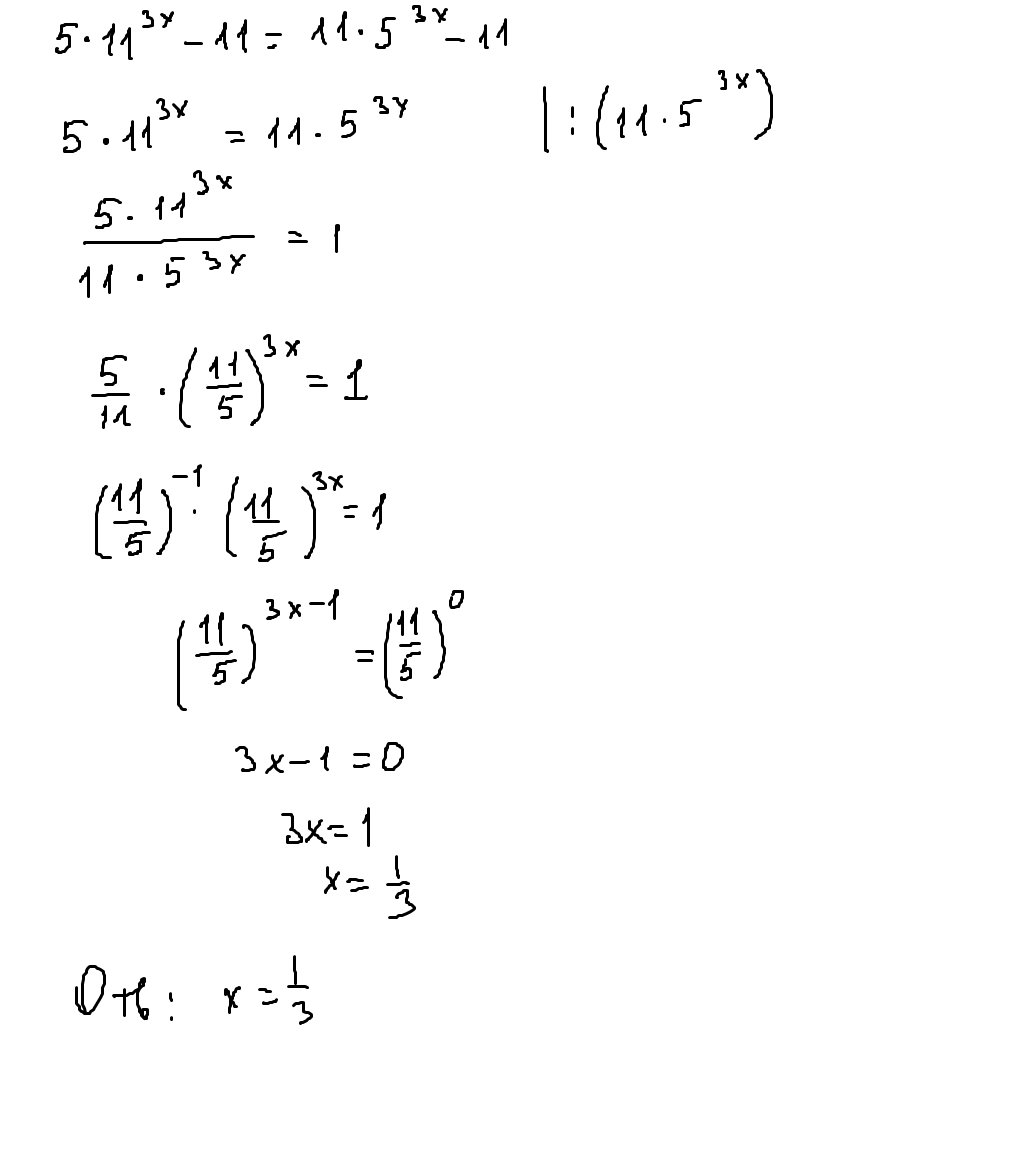 5·11^{3x} - 11 = 11·5^{3x} - 11
5·11^{3x} = 11·5^{3x} |:(11·5^{3x})
\frac{5·11^{3x}}{11·5^{3x}} = 1
\frac{5}{11}·(\frac{11}{5})^{3x} = 1
(\frac{11}{5})^{-1}·(\frac{11}{5})^{3x} = 1
(\frac{11}{5})^{3x-1} = (\frac{11}{5})^{0}
3x-1=0
3x=1
x=\frac{1}{3}
Отв: x=\frac{1}{3}